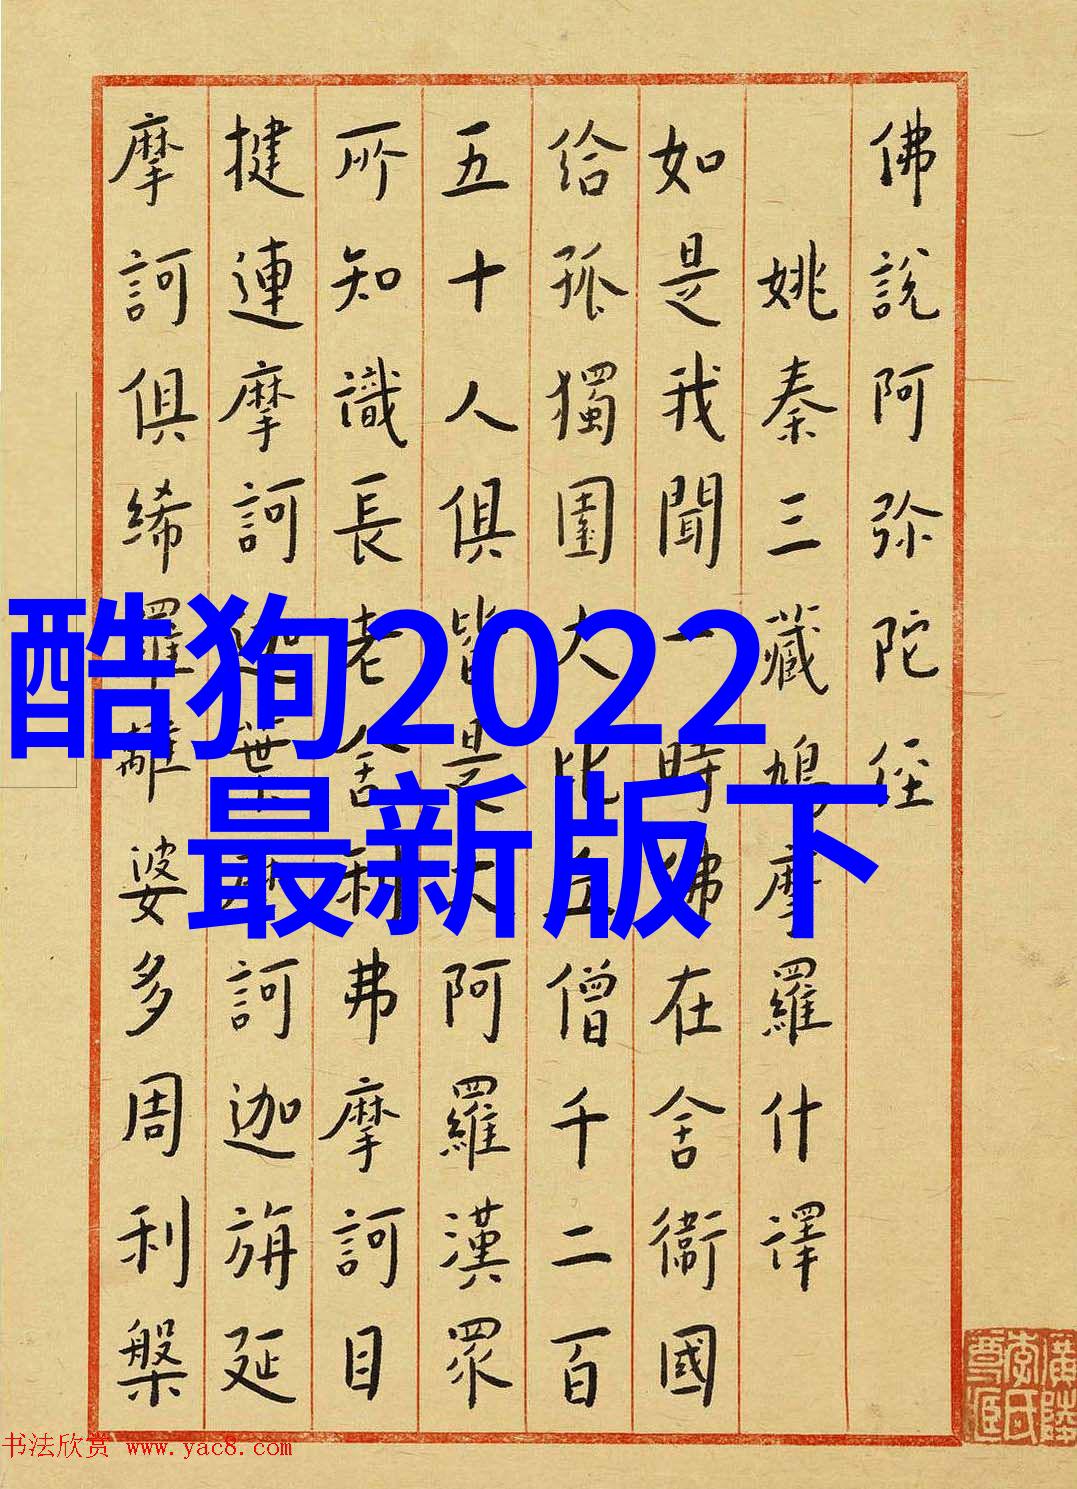 佛說阿弥陀经
姚秦三藏鳩摩羅什譯
如是我聞一時佛在舍衛國
給孤獨園大比丘僧千二百
五十人俱皆是大阿羅漢眾
所知識長老舍利弗摩訶目
揵連摩訶迦葉摩訶迦旃延
摩訶俱絺羅離婆多周利槃
酷狗2022
最新版下
书法欣赏 www.yac8.com